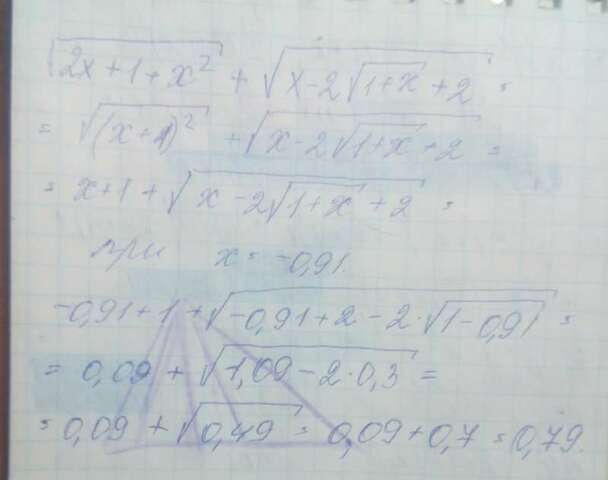 √(2x+1+x²) + √(x-2√(1+x)+2) =
= √((x+1)²) + √(x-2√(1+x)+2) =
= x+1+√(x-2√(1+x)+2) =
при x=-0,91.
-0,91+1+√(-0,91+2-2·√(1-0,91)) =
= 0,09 + √(1,09-2·0,3) =
= 0,09 + √(0,49) = 0,09+0,7=0,79.